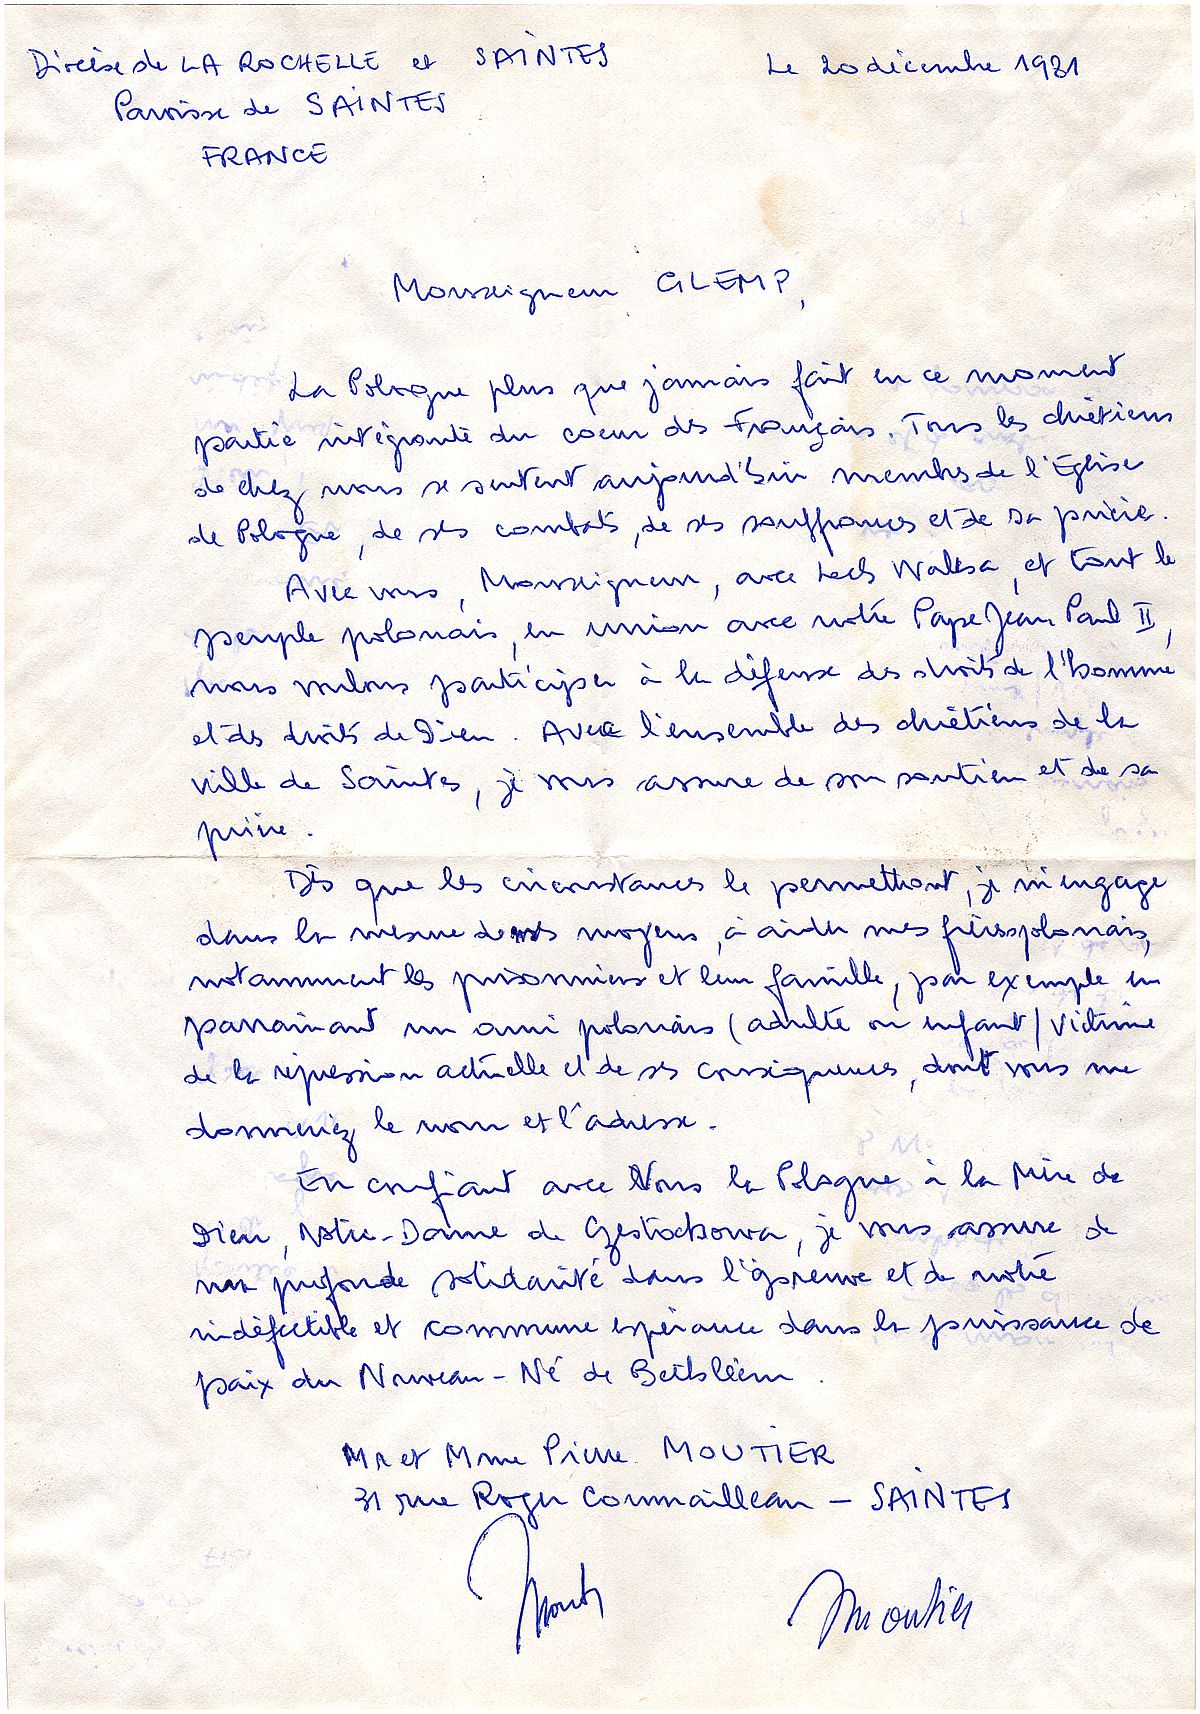 Diocèse de LA ROCHELLE et SAINTES
Le 20 décembre 1981
Paroisse de SAINTES
FRANCE
Monseigneur GLEMP,
La Pologne plus que jamais fait en ce moment
partie intégrante du coeur des Français. Tous les chrétiens
de chez nous se sentent aujourd'hui membres de l'Eglise
de Pologne, de ses combats, de ses souffrances et de sa prière.
Avec vous, Monseigneur, avec Lech Walesa, et tout le
peuple polonais, en union avec notre Pape Jean Paul II,
nous voulons participer à la défense des droits de l'homme
et des droits de Dieu. Avec l'ensemble des chrétiens de la
ville de Saintes, je vous assure de son soutien et de sa
prière.
Dès que les circonstances le permettront, je m'engage
dans la mesure de mes moyens, à aider mes frères polonais,
notamment les prisonniers et leur famille, par exemple en
parrainant un ami polonais (adulte ou enfant) victime
de la répression actuelle et de ses conséquences, dont vous me
donneriez le nom et l'adresse.
En confiant avec Vous la Pologne à la Mère de
Dieu, Notre-Dame de Czestochowa, je vous assure de
ma profonde solidarité dans l'épreuve et de notre
indéfectible et commune espérance dans la puissance de
paix du Nouveau-Né de Bethléem.
Mr et Mme Pierre MOUTIER
31 rue Roger Cormailleau - SAINTES
Moutier